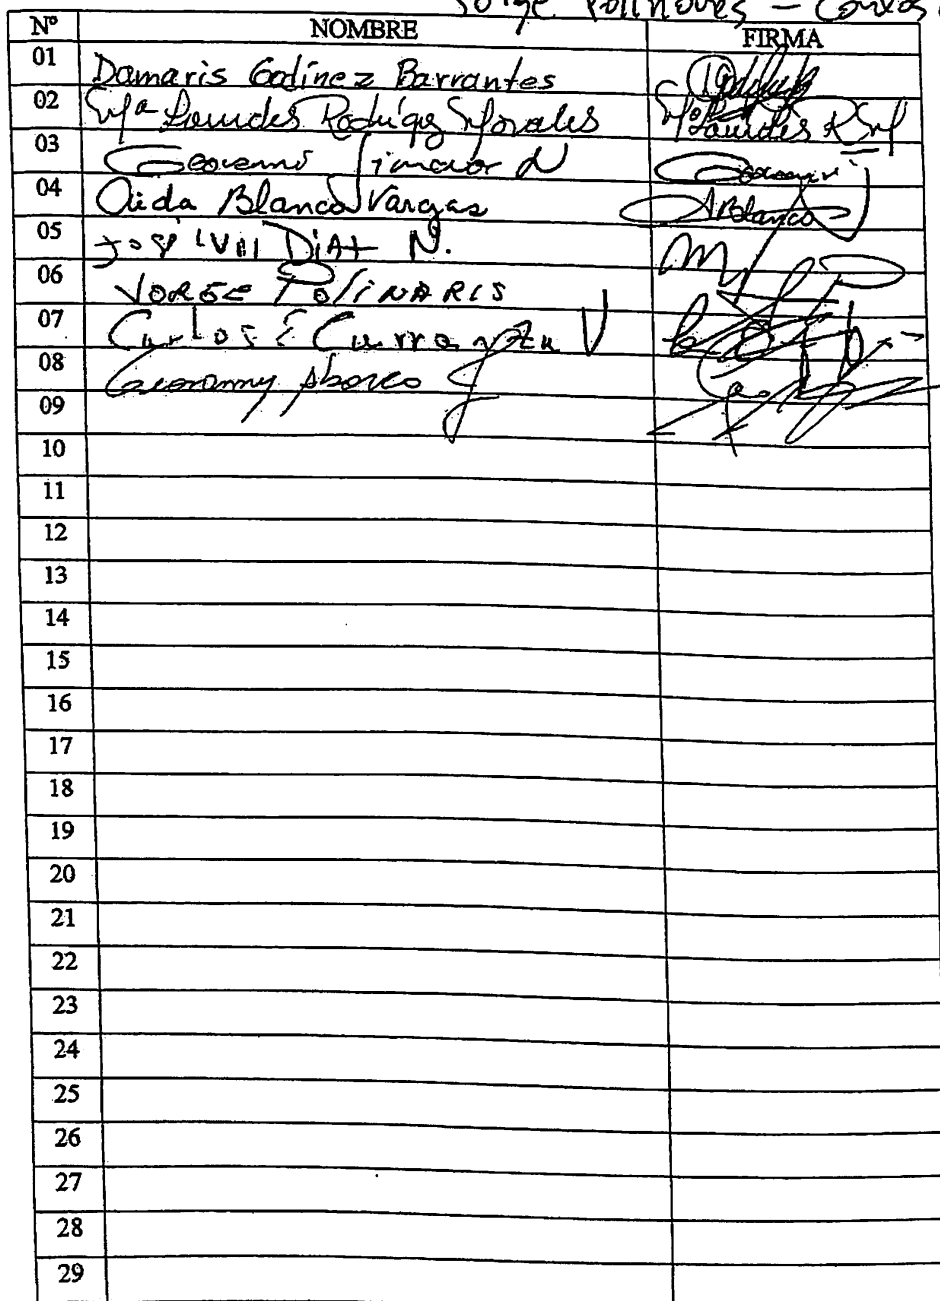 Jorge Polinares - Carlos
N° NOMBRE FIRMA
01 Damaris Godínez Barrantes
02 Mª Lourdes Rodrigz Morales Mª Lourdes R M
03 Geovanni Jimenez N Geovanni
04 Aida Blanco Vargas ABlanco
05 José Luis DiAz N.
06 JORGE PoliNARIS
07 Carlos E Carranza V
08 Geovanny Abarca J
09
10
11
12
13
14
15
16
17
18
19
20
21
22
23
24
25
26
27
28
29